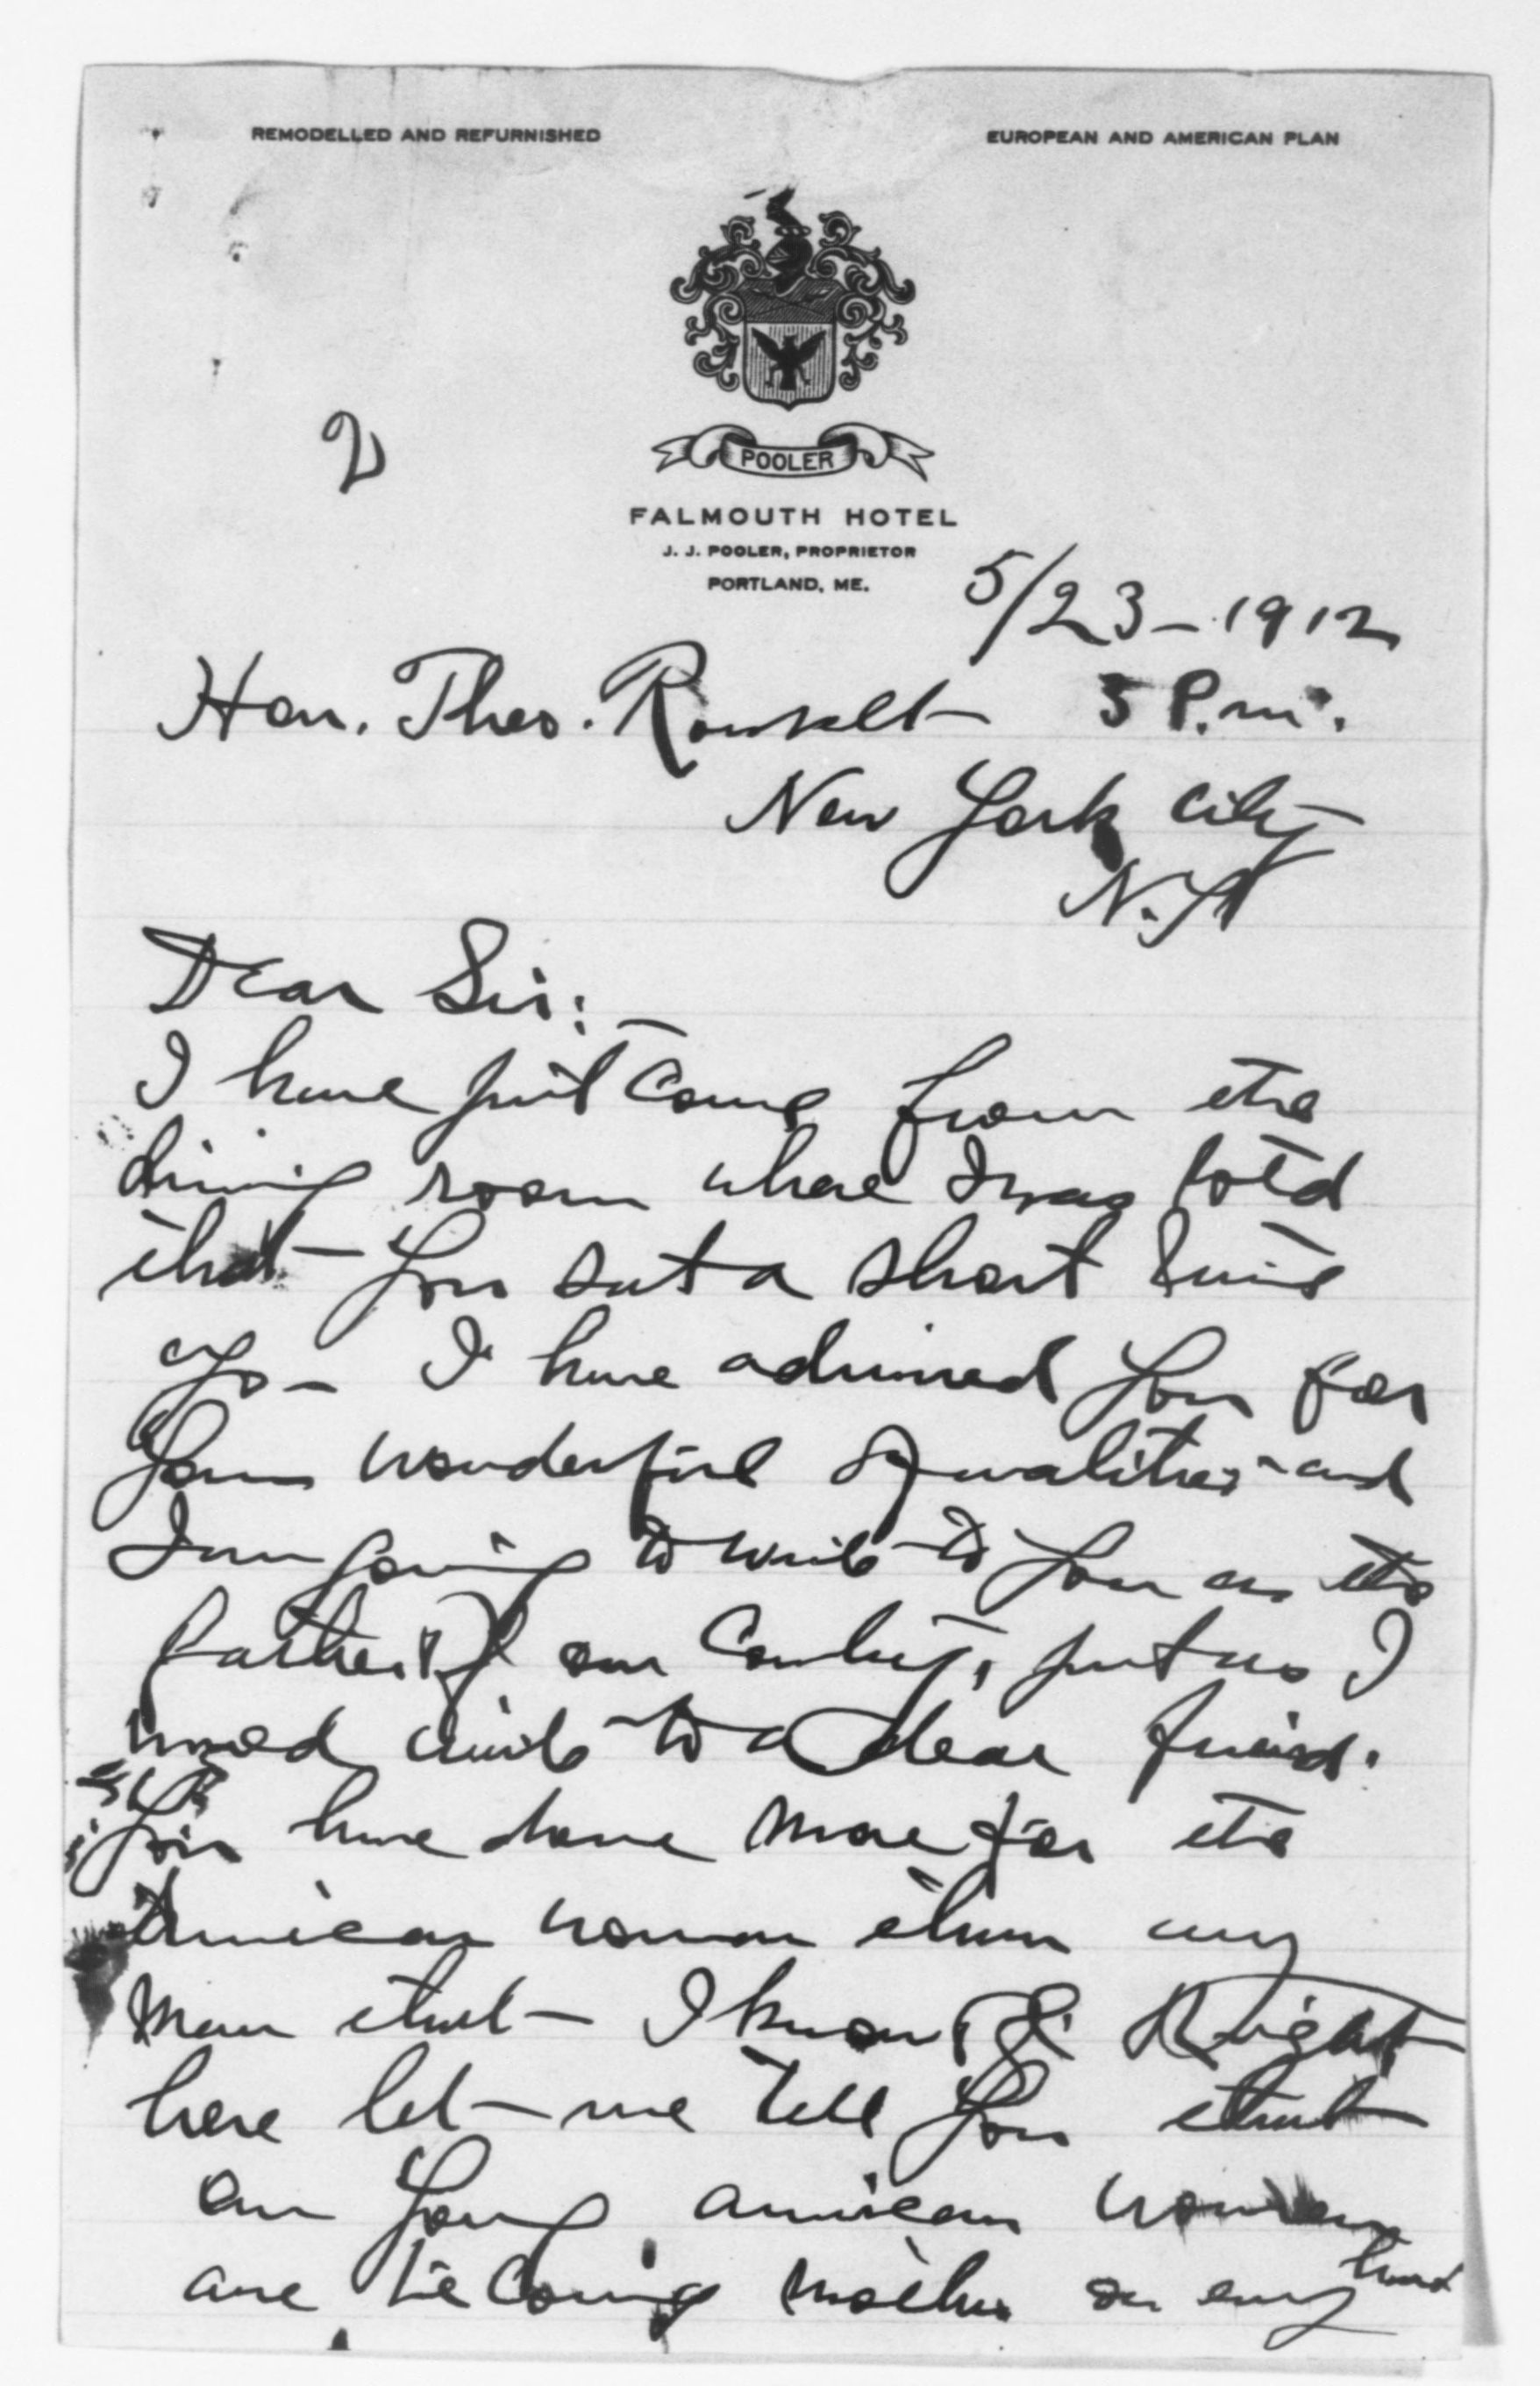 REMODELLED AND REFURNISHED
EUROPEAN AND AMERICAN PLAN
2
POOLER
FALMOUTH HOTEL
J. J. POOLER, PROPRIETOR
PORTLAND, ME.
5/23-1912
Hon. Theo. Roosevelt 5 P.m.
New York City
N.Y
Dear Sir:
I have just come from the
dining room where I was told
that you sat a short time
ago - I have admired you for
your wonderful qualities and
I am going to write to you as the
father of our Country, just as I
would write to a dear friend.
You have done more for the
American woman than any
man that I know of. Right
here let me tell you that
our young american women
are becoming mothers on every hand